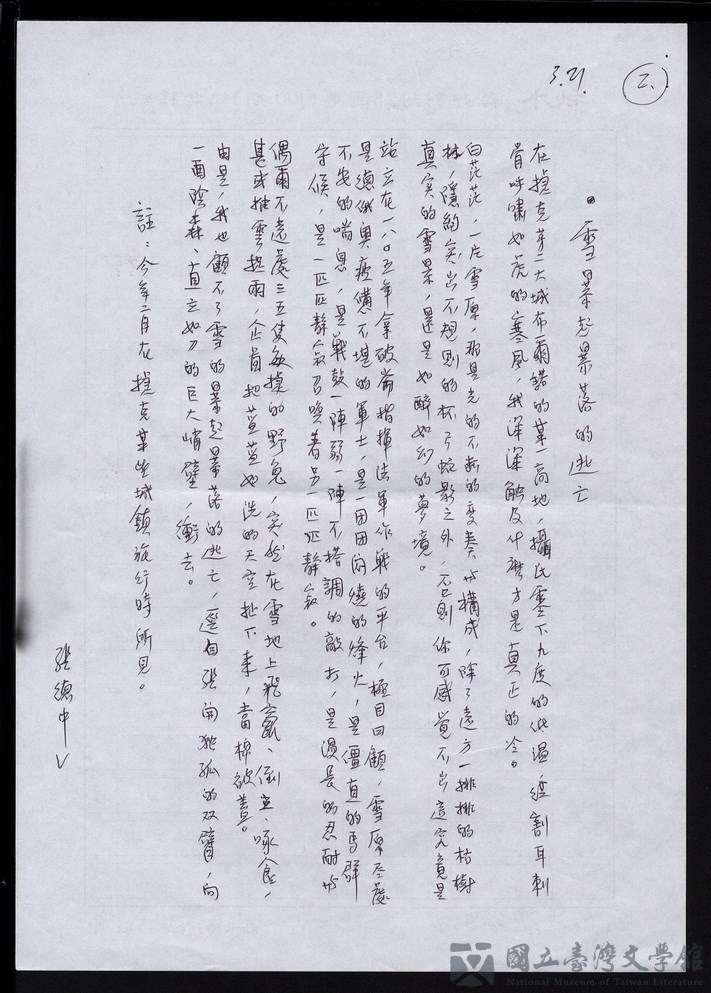 3.21.
二、
•雪暴起暴落的逃亡
在捷克第二大城布爾諾的某一高地,攝氏零下九度的低溫,從割耳刺
骨呼嘯如虎的寒風,我深深觸及什麼才是真正的冷。
白茫茫,一片雪原,那是光的不斷的變奏㘝構成,除了遠方一排排的枯樹
林,隱約突出不規則的杯弓蛇影之外,否則你可感覺不出這究竟是
真实的雪景,還是如醉如幻的夢境。
站立在一八〇五年拿破崙指揮法軍作戰的平台,極目回顧,雪原盡處
是德俄奧疲憊不堪的軍士,是一团团闷燒的烽火,是僵直的馬群
不安的喘息,是戰鼓一陣弱一陣不搭調的敲打,是漫長的忍耐与
守候,是一匹匹靜寂召喚著另一匹匹靜寂。
偶爾不遠處三五隻敏捷的野兔,突然在雪地上飛竄、倒立、啄食,
甚或推雲抱雨,企圖把藍藍如洗的天空扯下來,當棉被蓋。
由是,我也顧不了雪的暴起暴落的逃亡,逕自張開孤孤的双臂,向
一面陰森直立如刀的巨大峭壁,衝去。
註:今年二月在捷克某些城鎮旅行時所見。
張德中
國立臺灣文學館
National Museum of Taiwan Literature